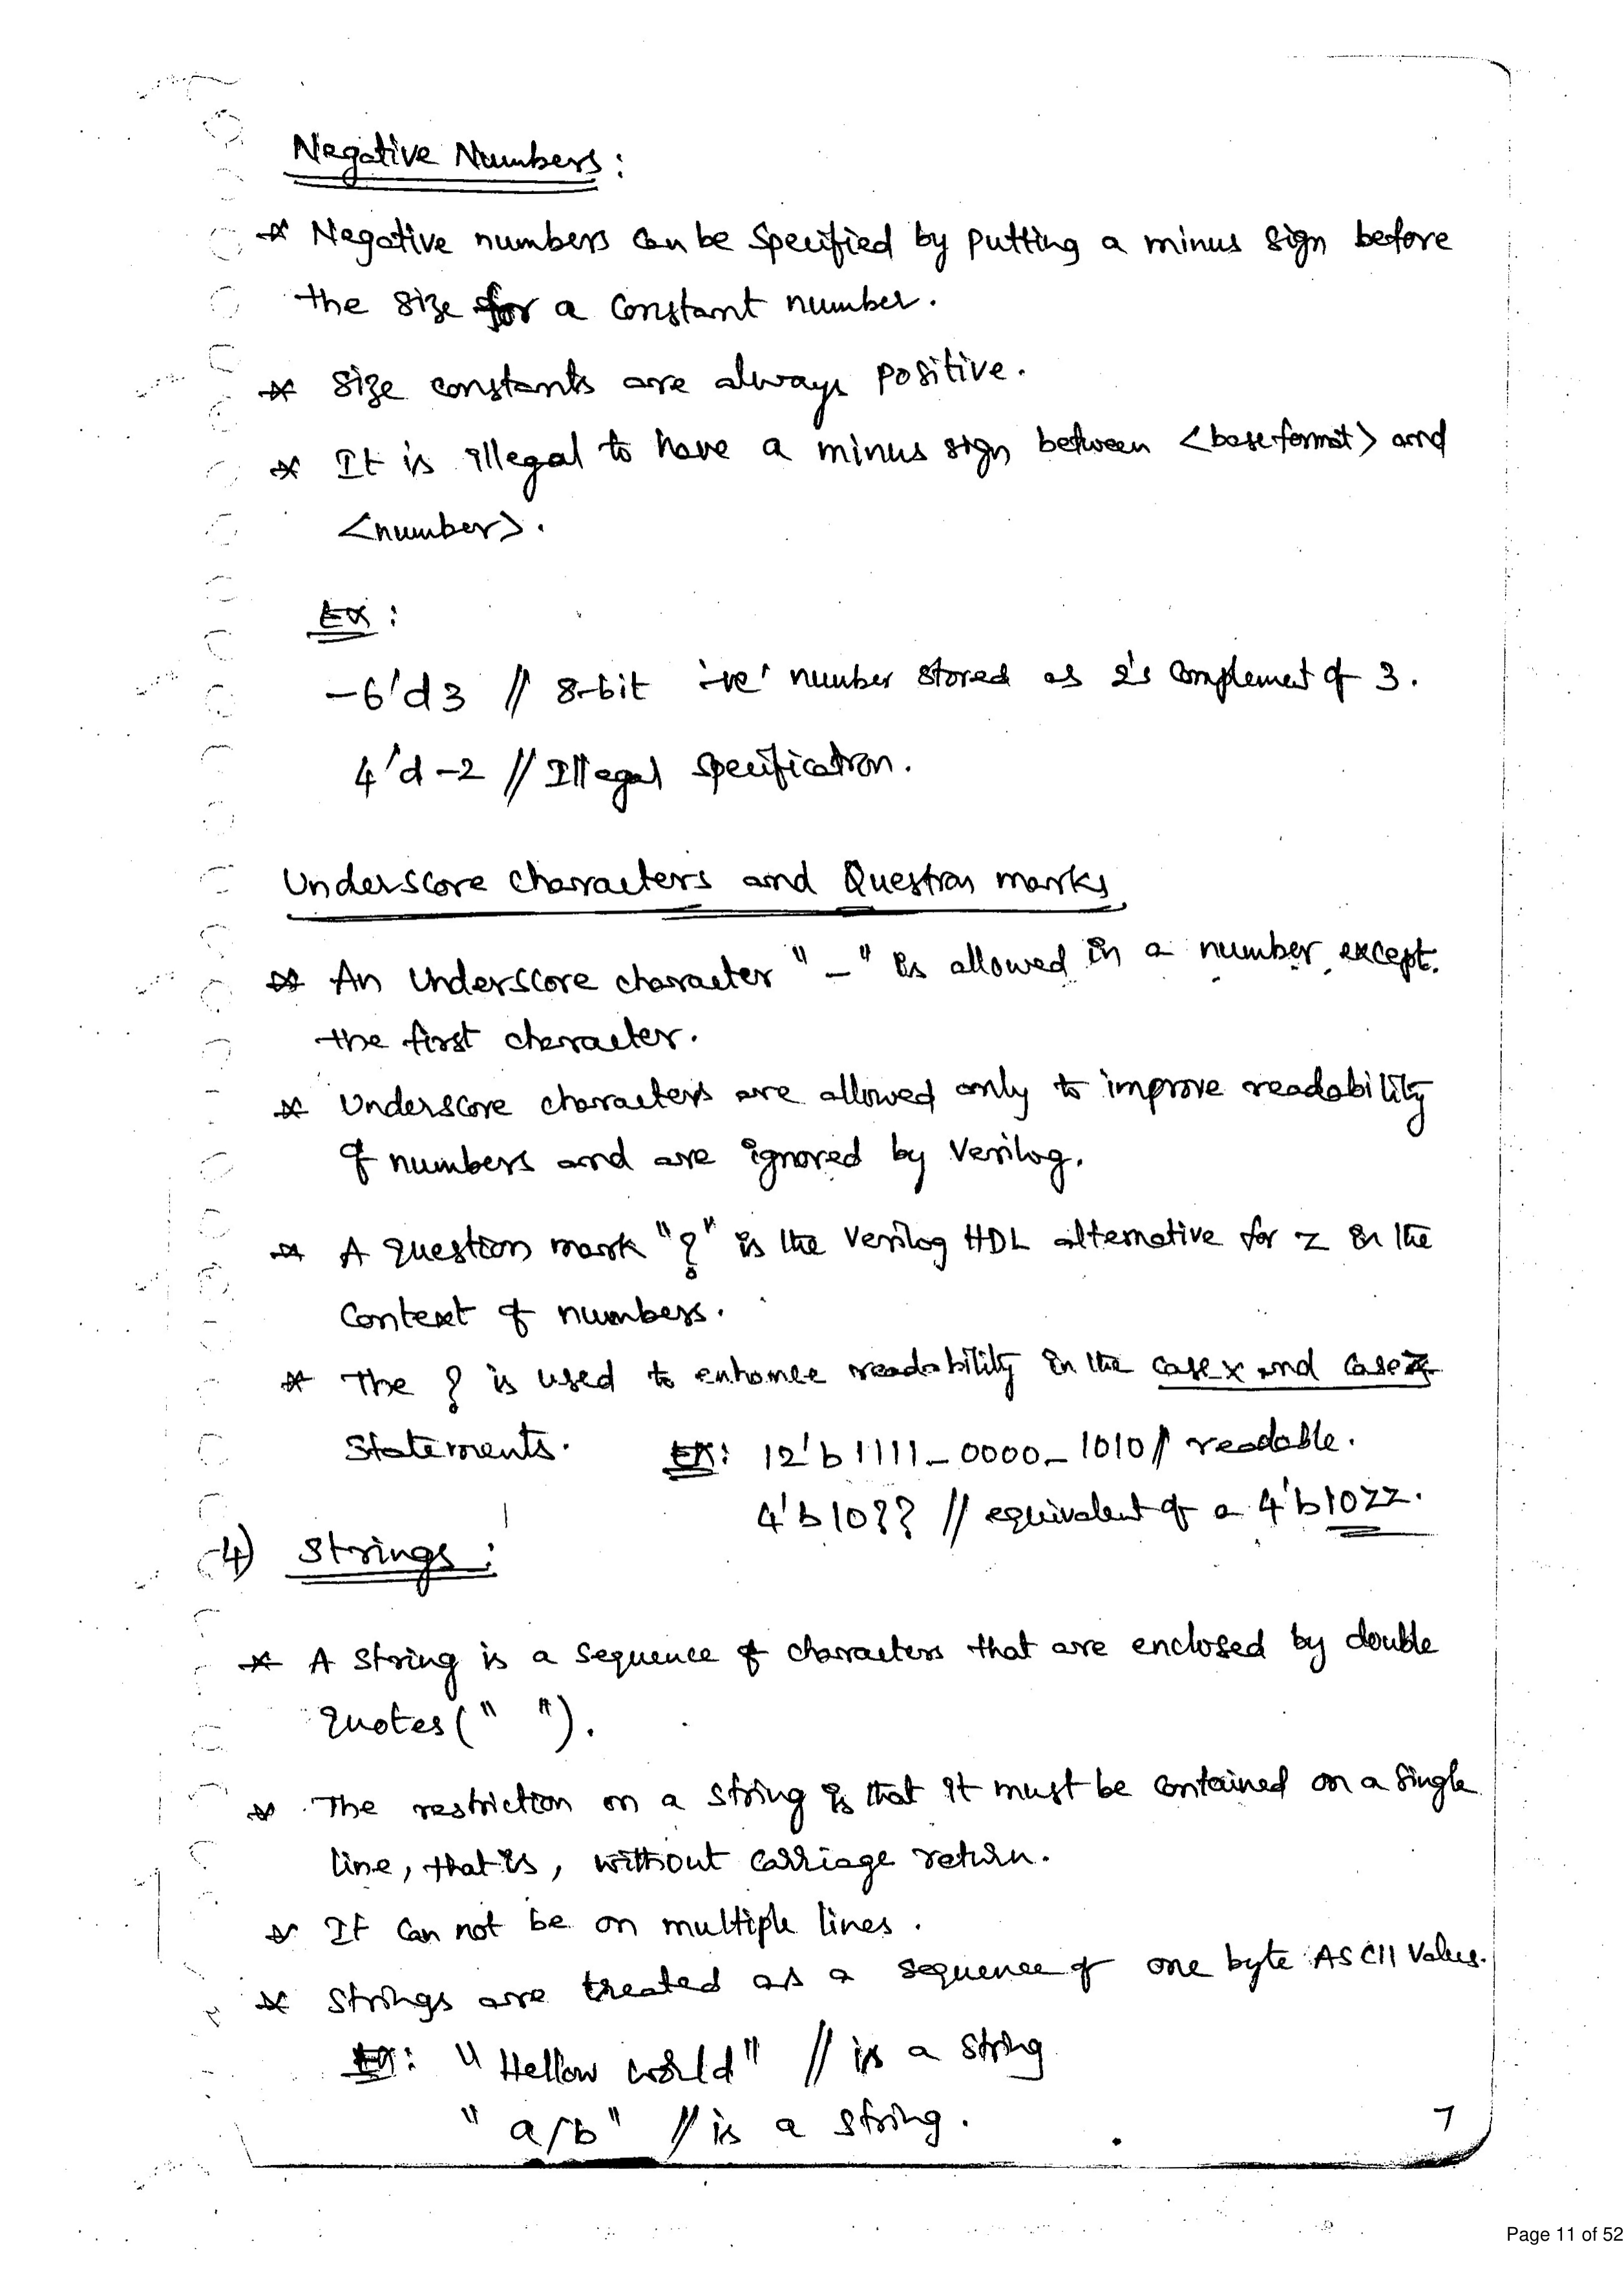 Negative Numbers:
* Negative numbers can be specified by putting a minus sign before
the size for a constant number.
* Size constants are always positive.
* It is illegal to have a minus sign between <base format> and
<number>.
Ex:
-6'd3 // 8-bit '-ve' number stored as 2's complement of 3.
4'd-2 // Illegal specification.
Underscore characters and Question marks
* An Underscore character "_" is allowed in a number except
the first character.
* Underscore characters are allowed only to improve readability
of numbers and are ignored by Verilog.
* A question mark "?" is the Verilog HDL alternative for z in the
context of numbers.
* The ? is used to enhance readability in the casex and casez
statements. Ex: 12'b1111_0000_1010 // readable.
4'b10?? // equivalent of a 4'b10zz.
4) Strings:
* A string is a sequence of characters that are enclosed by double
quotes (" ").
* The restriction on a string is that it must be contained on a single
line, that is, without carriage return.
* It can not be on multiple lines.
* Strings are treated as a sequence of one byte ASCII values.
Ex: "Hellow world" // is a string
"a/b" // is a string.
7
Page 11 of 52